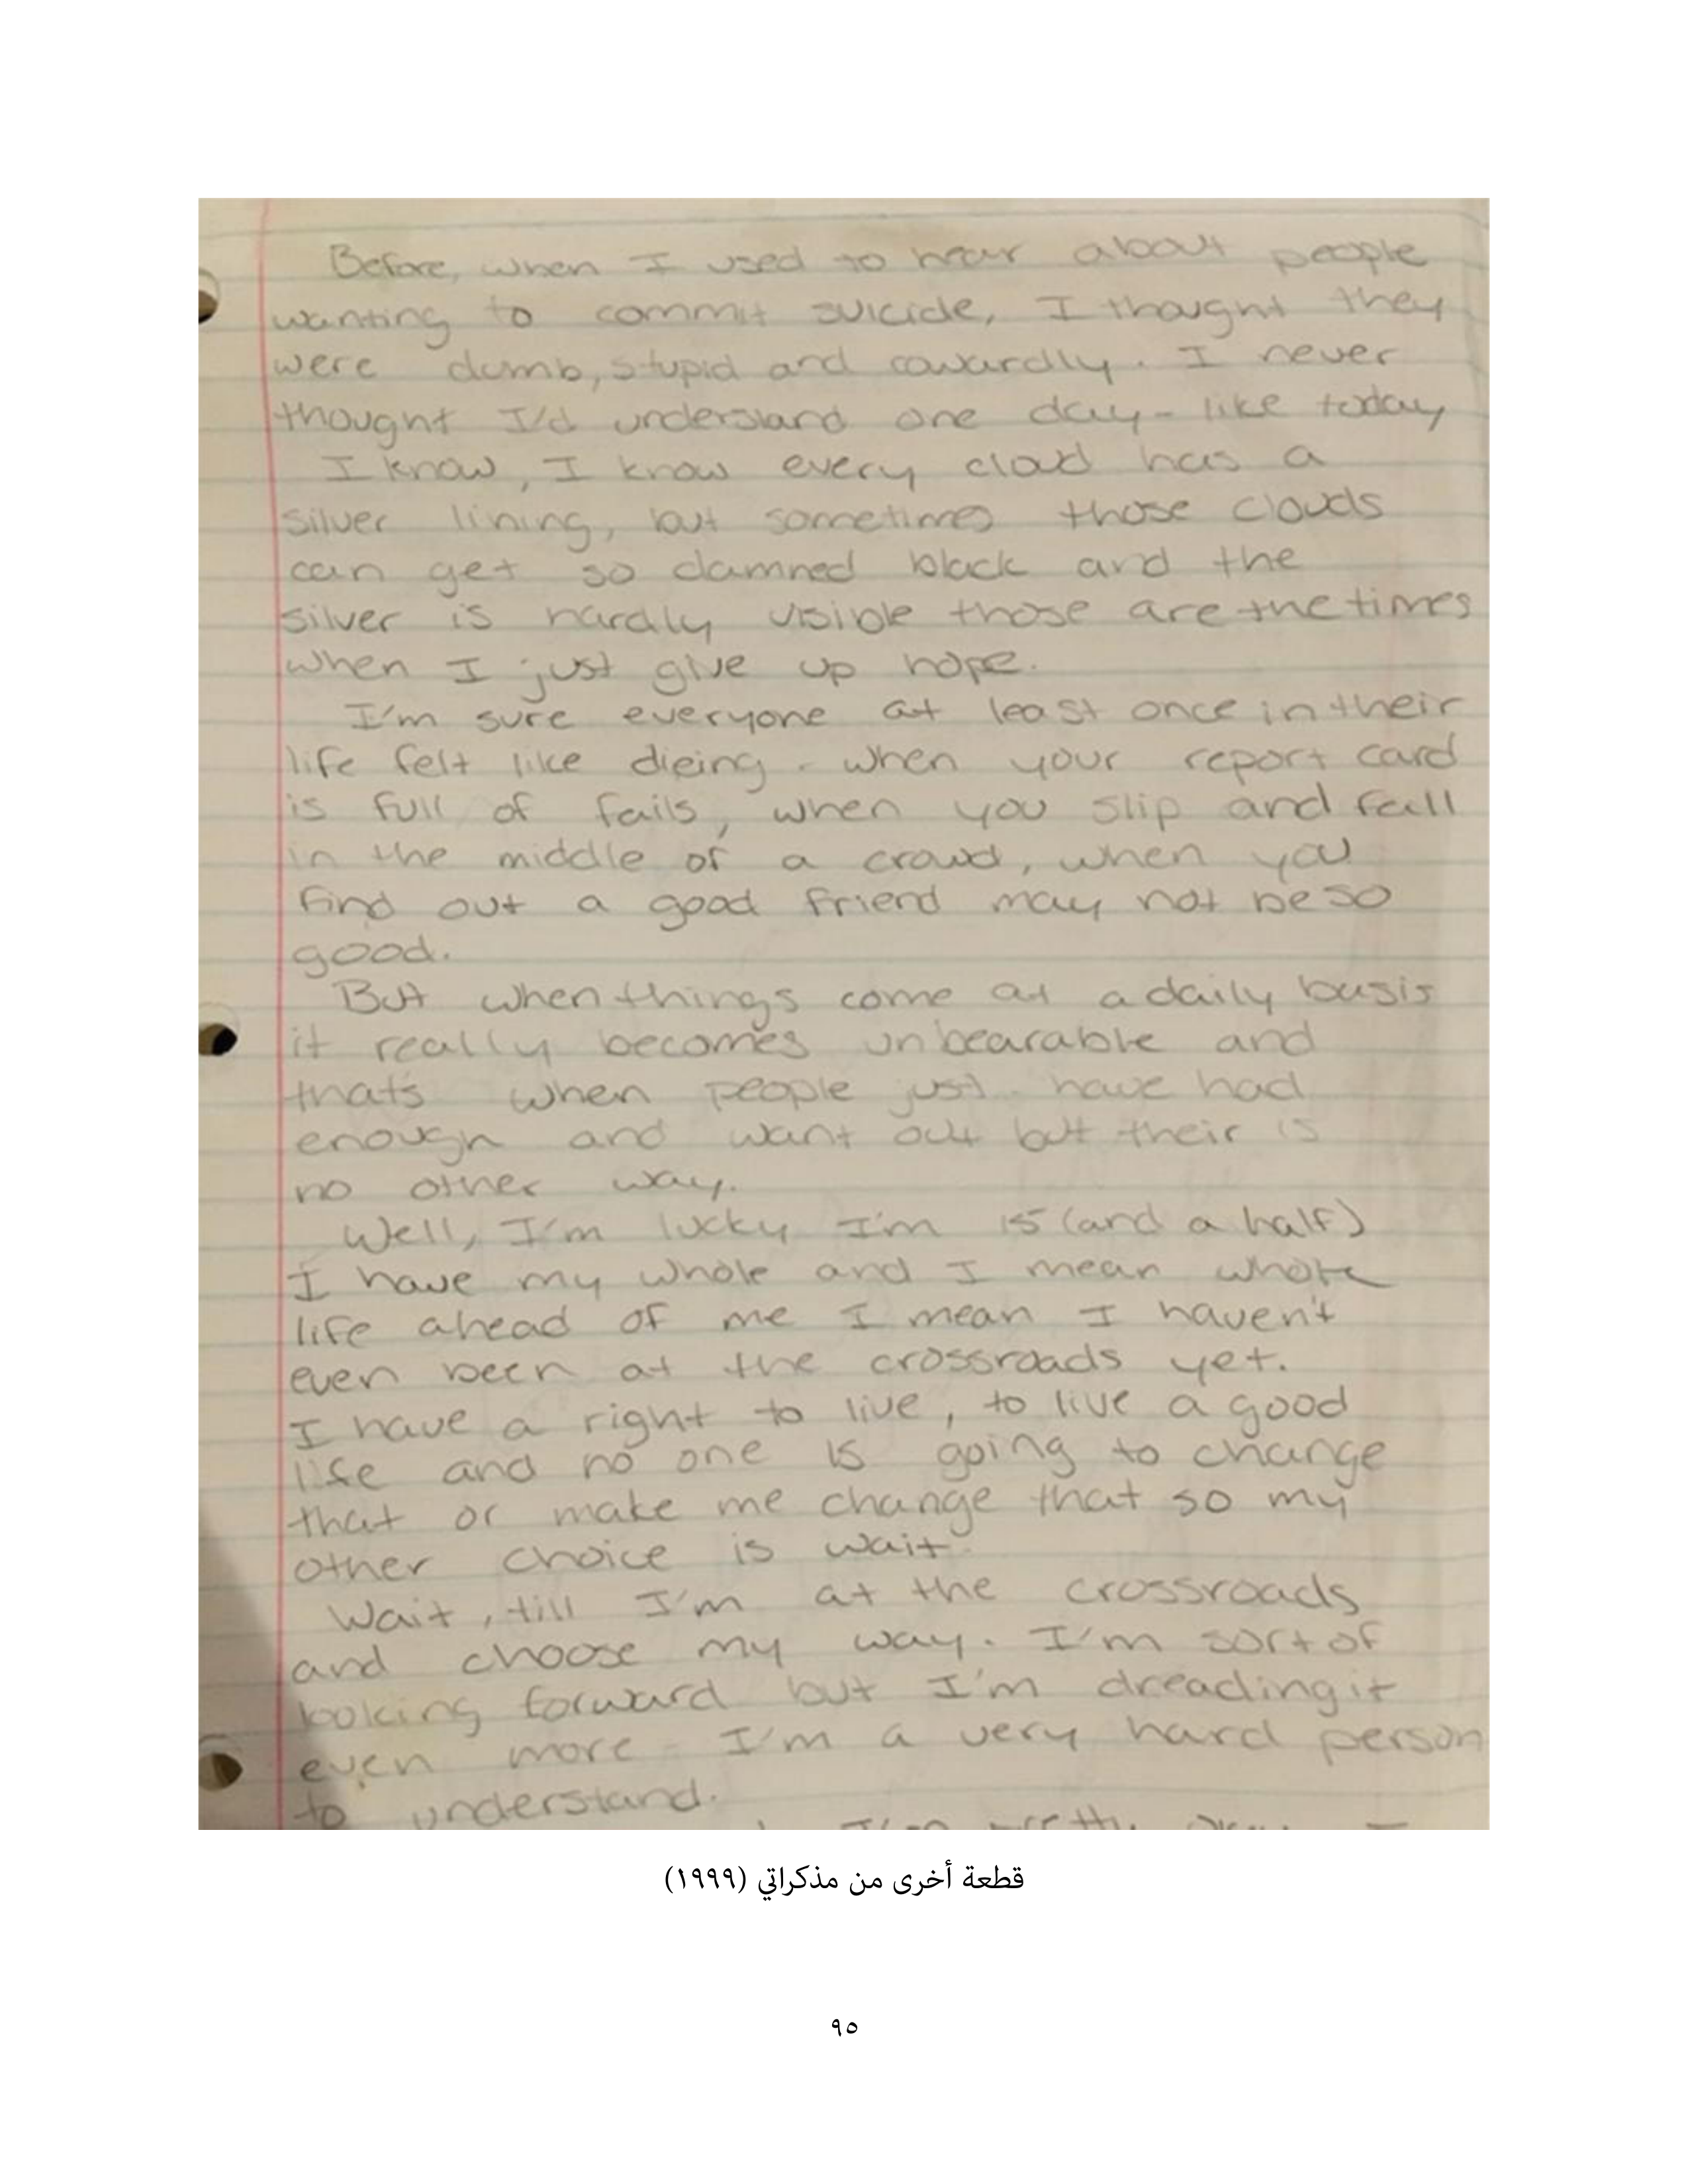 Before, when I used to hear about people
wanting to commit suicide, I thought they
were dumb, stupid and cowardly. I never
thought I'd understand one day - like today
I know, I know every cloud has a
silver lining, but sometimes those clouds
can get so damned black and the
silver is hardly visible those are the times
when I just give up hope.
I'm sure everyone at least once in their
life felt like dieing - when your report card
is full of fails, when you slip and fall
in the middle of a crowd, when you
find out a good friend may not be so
good.
But when things come at a daily basis
it really becomes unbearable and
that's when people just have had
enough and want out but their is
no other way.
Well, I'm lucky I'm 15 (and a half)
I have my whole and I mean whole
life ahead of me I mean I haven't
even been at the crossroads yet.
I have a right to live, to live a good
life and no one is going to change
that or make me change that so my
other choice is wait.
Wait, till I'm at the crossroads
and choose my way. I'm sort of
looking forward but I'm dreading it
even more - I'm a very hard person
to understand.
قطعة أخرى من مذكراتي (١٩٩٩)
٩٥